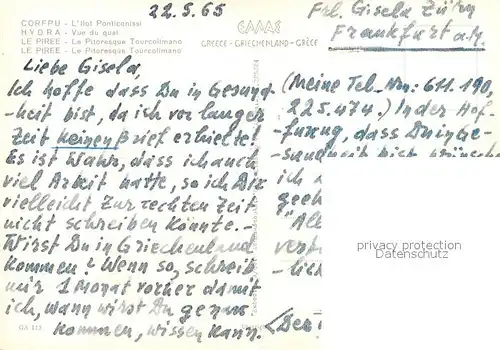 22.5.65
CORFPU - L'îlot Ponticonissi
HYDRA - Vue du quai
LE PIREE - Le Pitoresque Tourcolimano
LE PIREE - Le Pitoresque Tourcolimano
ΕΛΛΑΣ
GREECE - GRIECHENLAND - GRÈCE
Frl. Gisela Zürn
Frankfurt a.M.
Liebe Gisela,
Ich hoffe dass Du in Gesund
-heit bist, da ich vor langer
Zeit keinen Brief erhielte!
Es ist Wahr, dass ich auch
viel Arbeit hatte, so ich Dir
vielleicht zur rechten Zeit
nicht schreiben könnte.-
Wirst Du in Griechenland
kommen? Wenn so, schreib
mir 1 Monat vorher damit
ich, wann wirst Du genau
kommen, wissen kann.
GA 113
(Meine Tel. Nrn: 611.190,
225.474.) In der Hof-
fnung, dass Du in Ge-
sundheit bist, wünsche
ich
geeh
"All
verp
-lich
privacy protection
Datenschutz